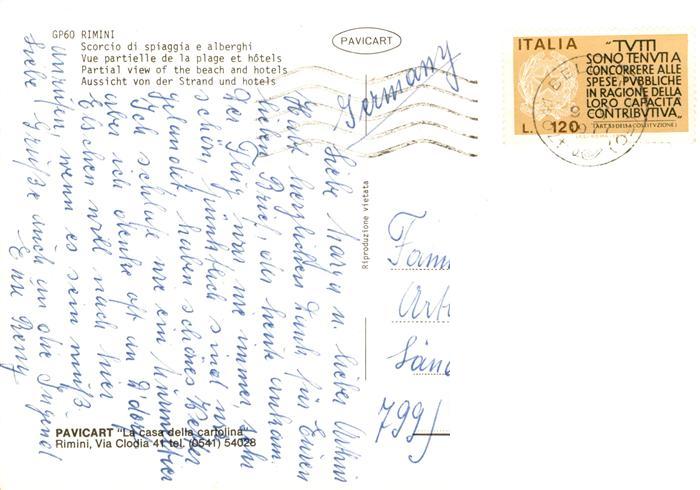 GP60 RIMINI
Scorcio di spiaggia e alberghi
Vue partielle de la plage et hôtels
Partial view of the beach and hotels
Aussicht von der Strand und hotels
PAVICART
Germany
ITALIA
"TUTTI
SONO TENUTI A
CONCORRERE ALLE
SPESE PUBBLICHE
IN RAGIONE DELLA
LORO CAPACITÀ
CONTRIBUTIVA"
(ART. 53 DELLA COSTITUZIONE)
L. 120
Liebe Marga u. lieber Arthur
Hab herzlichen Dank für Euren
lieben Brief, der heute ankam.
Der Flug war wie immer sehr
schön, pünktlich sind wir
gelandet, haben schönes Wetter
Ich schlafe wie ein Murmeltier
aber ich denke oft an
Elschen will nach hier
anrufen wenn es sein muß
Liebe Grüße auch an die Jugend
Eure
Riproduzione vietata
Fam
Art
Län
799
PAVICART "La casa della cartolina"
Rimini, Via Clodia 41 tel. (0541) 54028